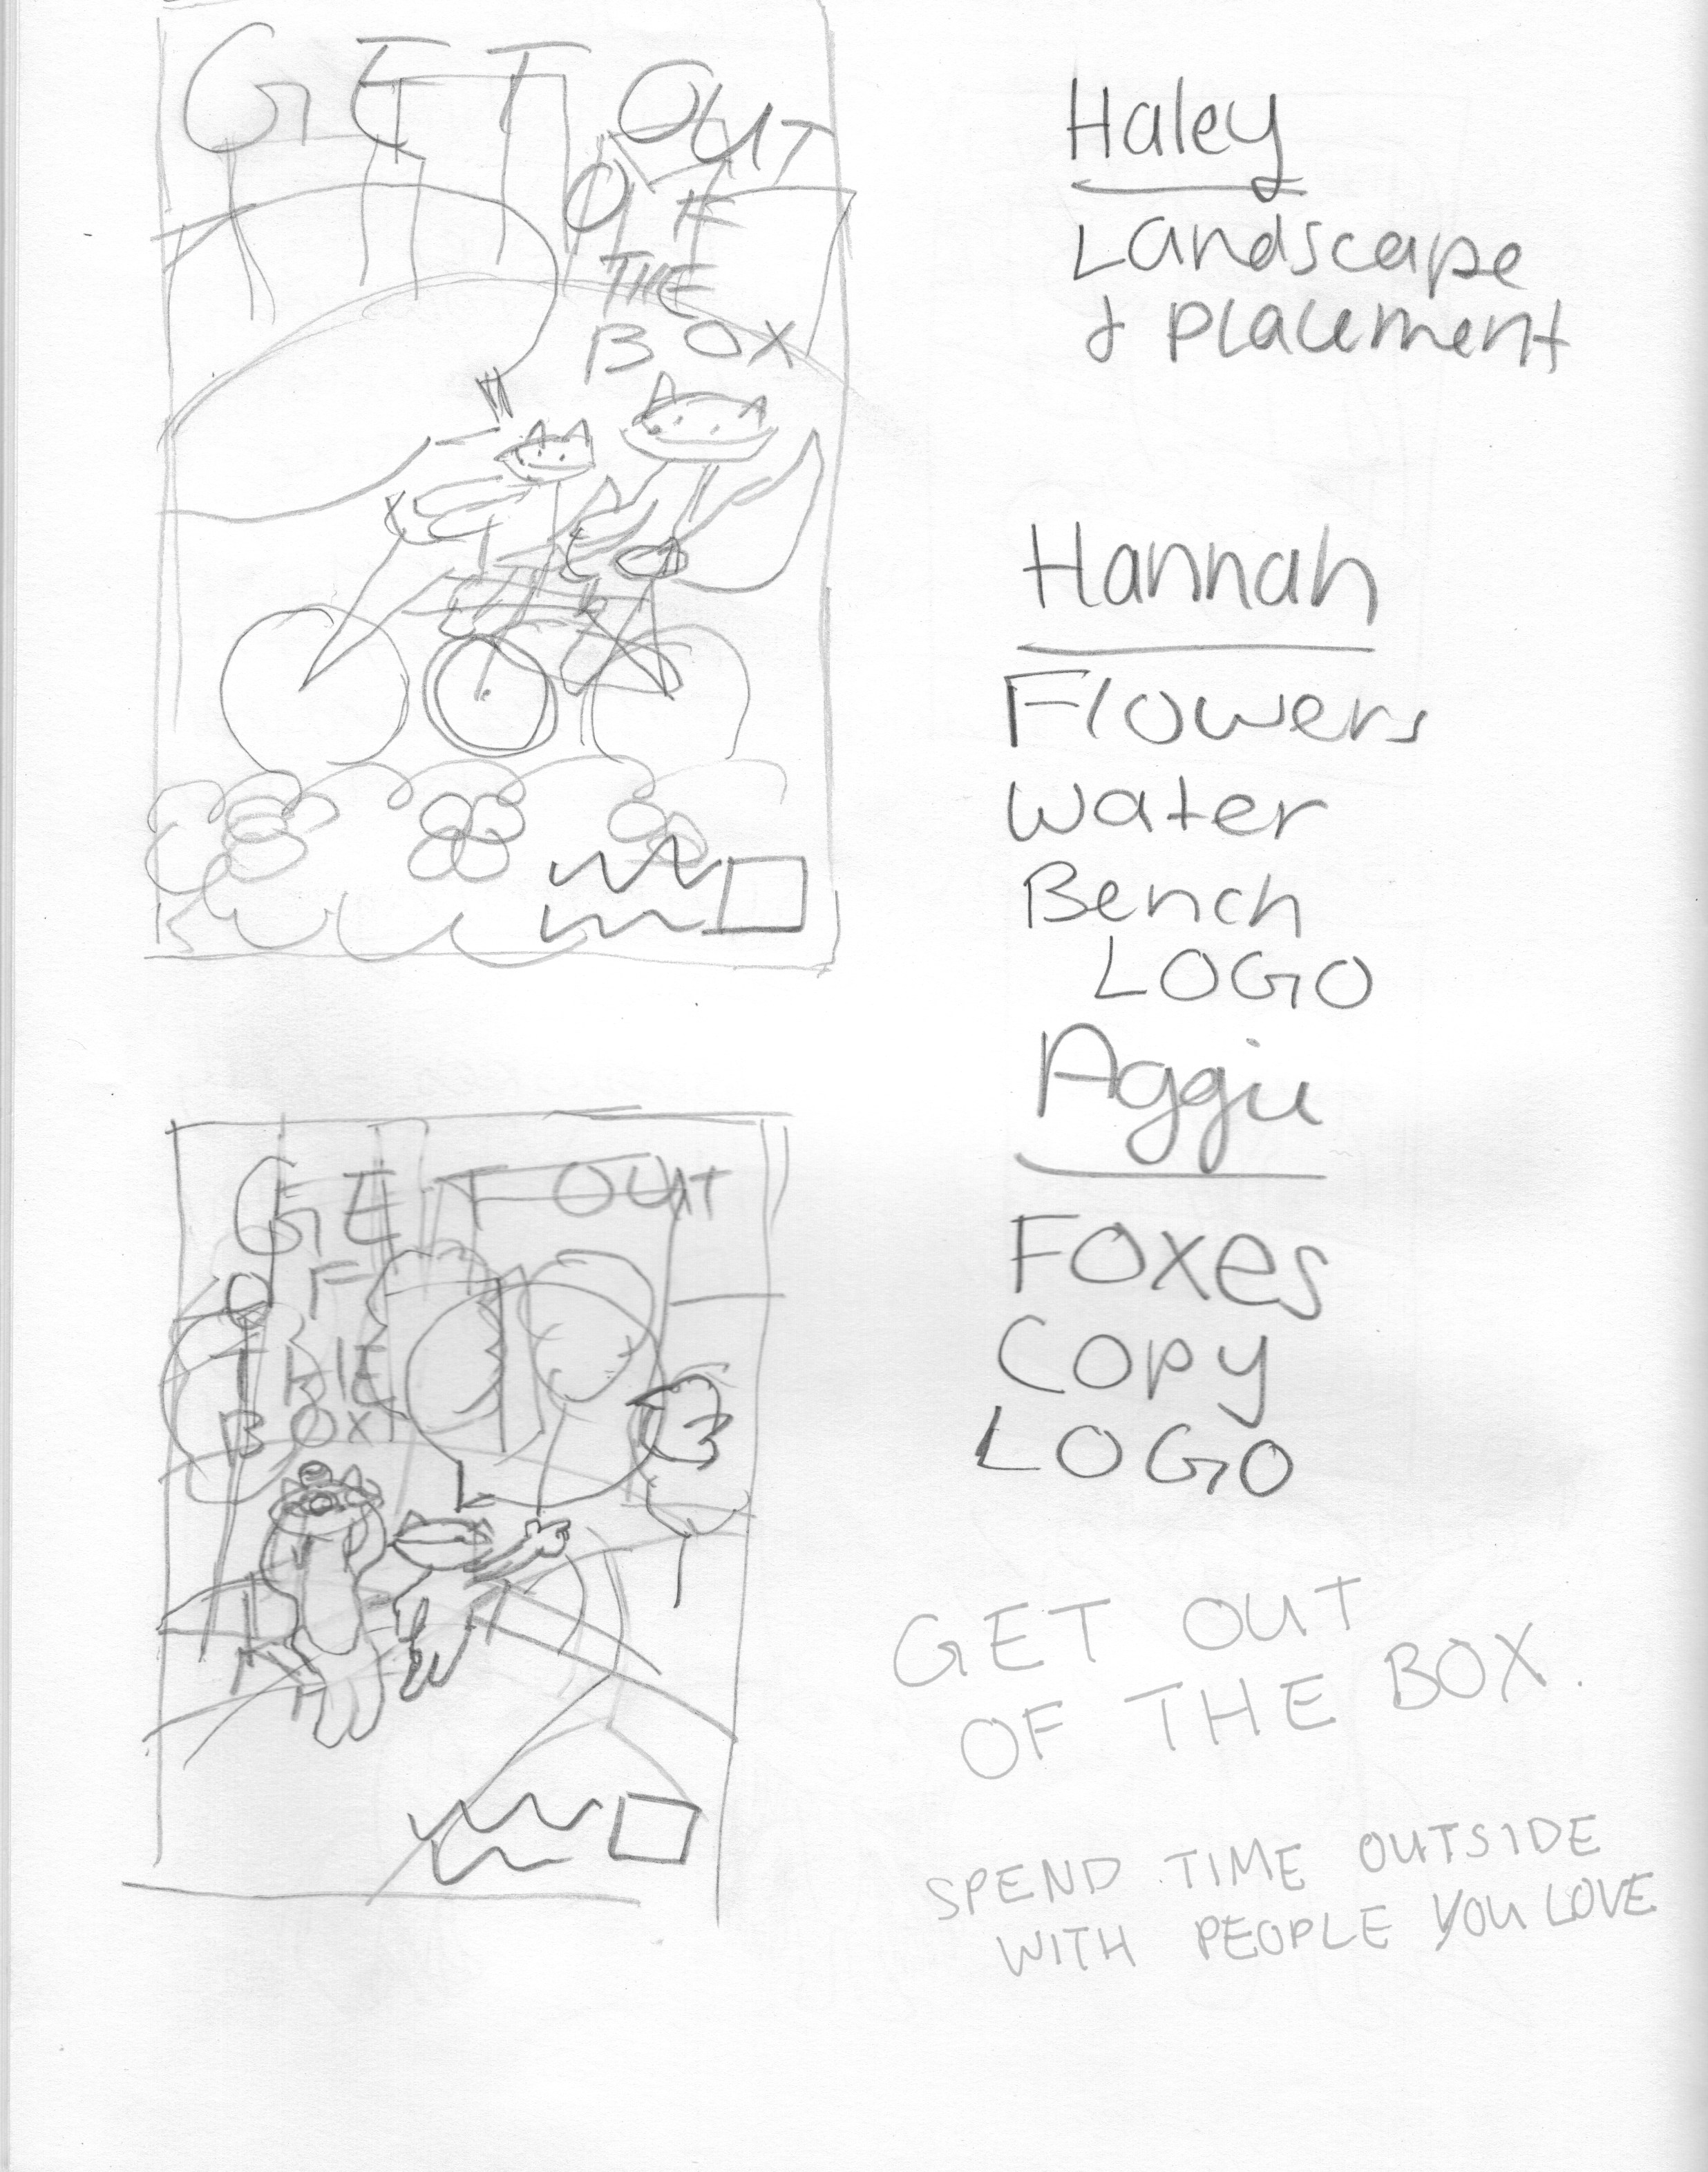 GET OUT
OF
THE
BOX
Haley
Landscape
& Placement
Hannah
Flowers
Water
Bench
LOGO
Aggie
Foxes
Copy
LOGO
GET OUT
OF
THE
BOX
GET OUT
OF THE BOX.
SPEND TIME OUTSIDE
WITH PEOPLE YOU LOVE